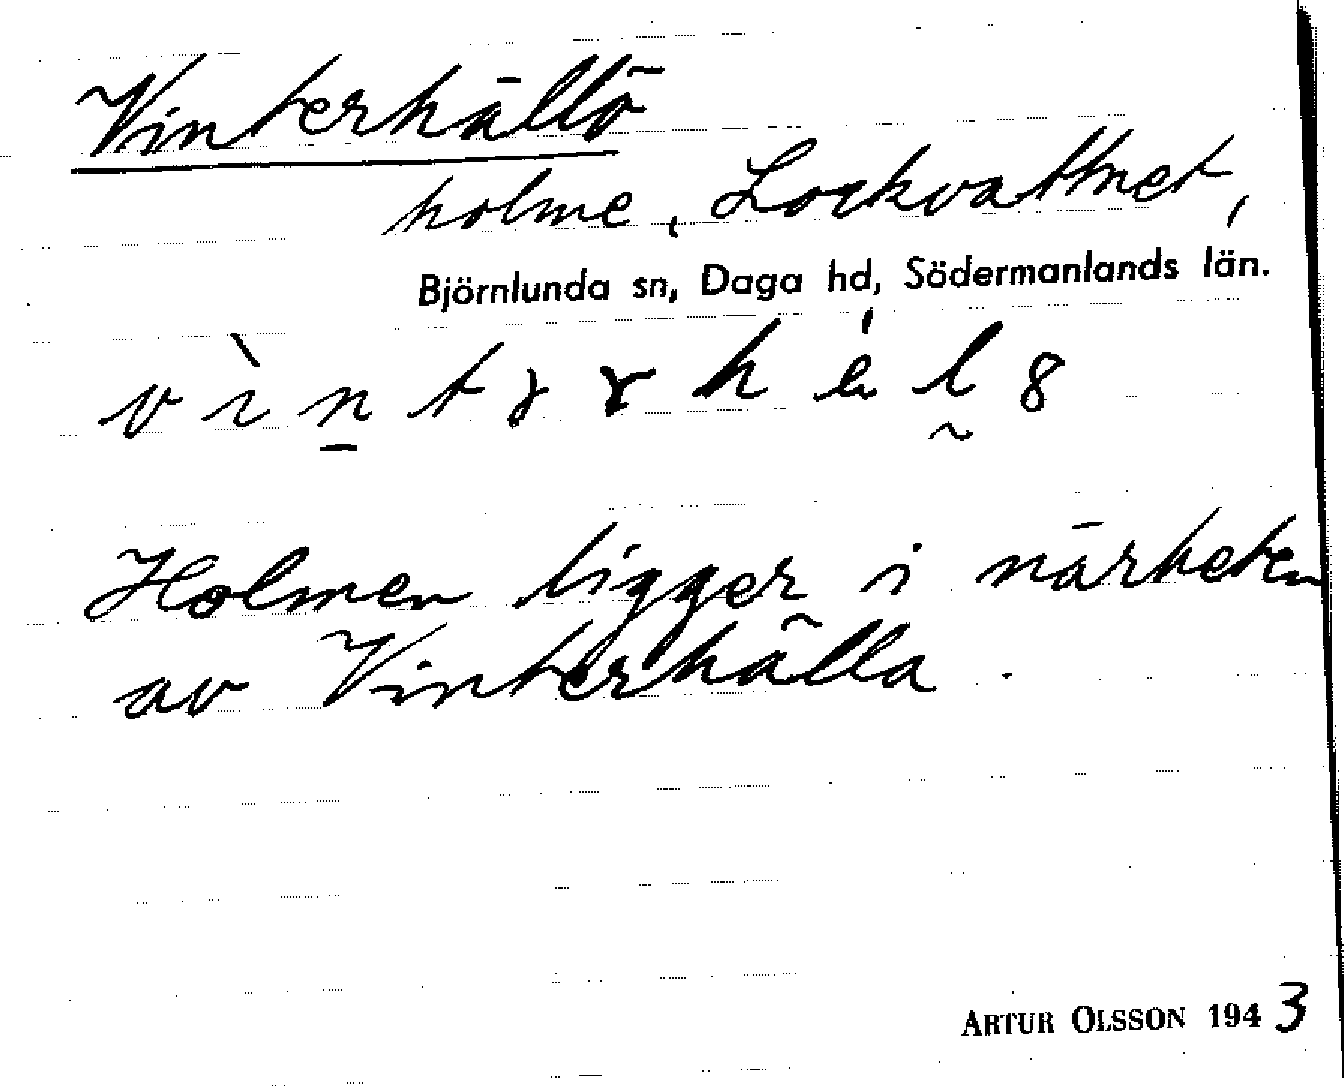 Vinterhällö
holme, Lockvattnet,
Björnlunda sn, Daga hd, Södermanlands län.
Holmen ligger i närheten
av Vinterhälla.
ARTUR OLSSON 1943